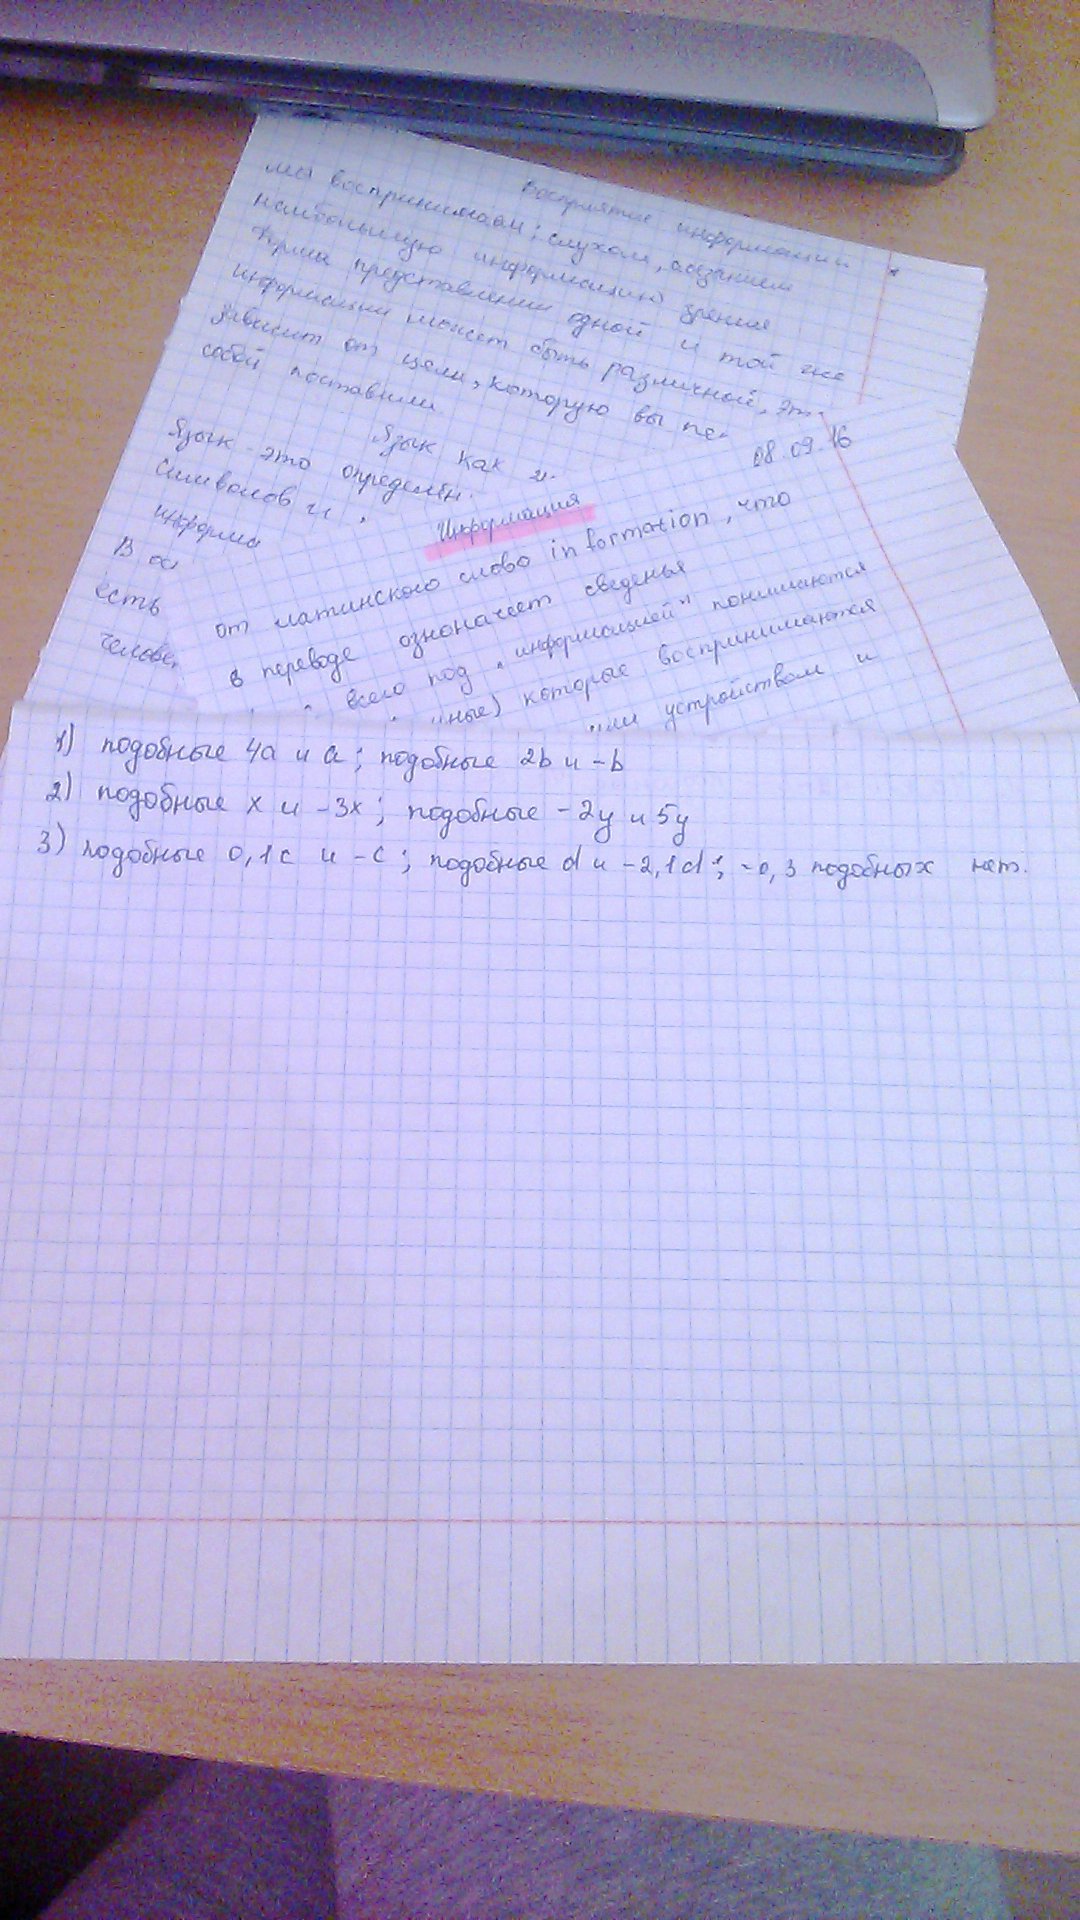 Восприятие информации
мы воспринимаем; слухом, осязанием
наибольшую информацию зрение
Форма представления одной и той же
информации может быть различной, это
зависит от цели, которую вы пе
собой поставили
Язык как
Язык - это определён
символов и
информа
В ос
есть
челове
08.09.16
Информация
от латинского слово information, что
в переводе означает сведенья
всего под "информацией" понимаются
нные) которые воспринимаются
или устройством и
1) подобные 4a и a; подобные 2b и -b
2) подобные x и -3x; подобные -2y и 5y
3) подобные 0,1c и -c; подобные d и -2,1d; -0,3 подобных нет.